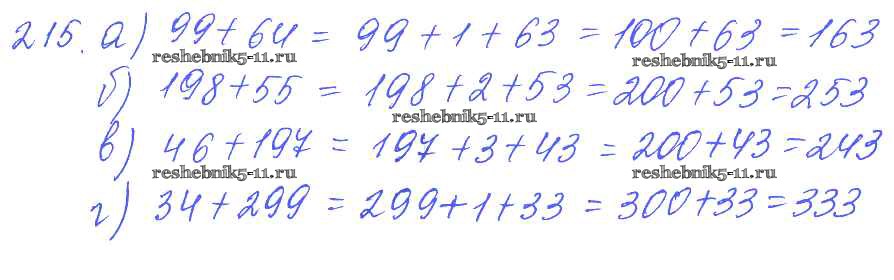 215. а) 99 + 64 = 99 + 1 + 63 = 100 + 63 = 163
reshebnik5-11.ru reshebnik5-11.ru
б) 198 + 55 = 198 + 2 + 53 = 200 + 53 = 253
reshebnik5-11.ru
в) 46 + 197 = 197 + 3 + 43 = 200 + 43 = 243
reshebnik5-11.ru reshebnik5-11.ru
г) 34 + 299 = 299 + 1 + 33 = 300 + 33 = 333